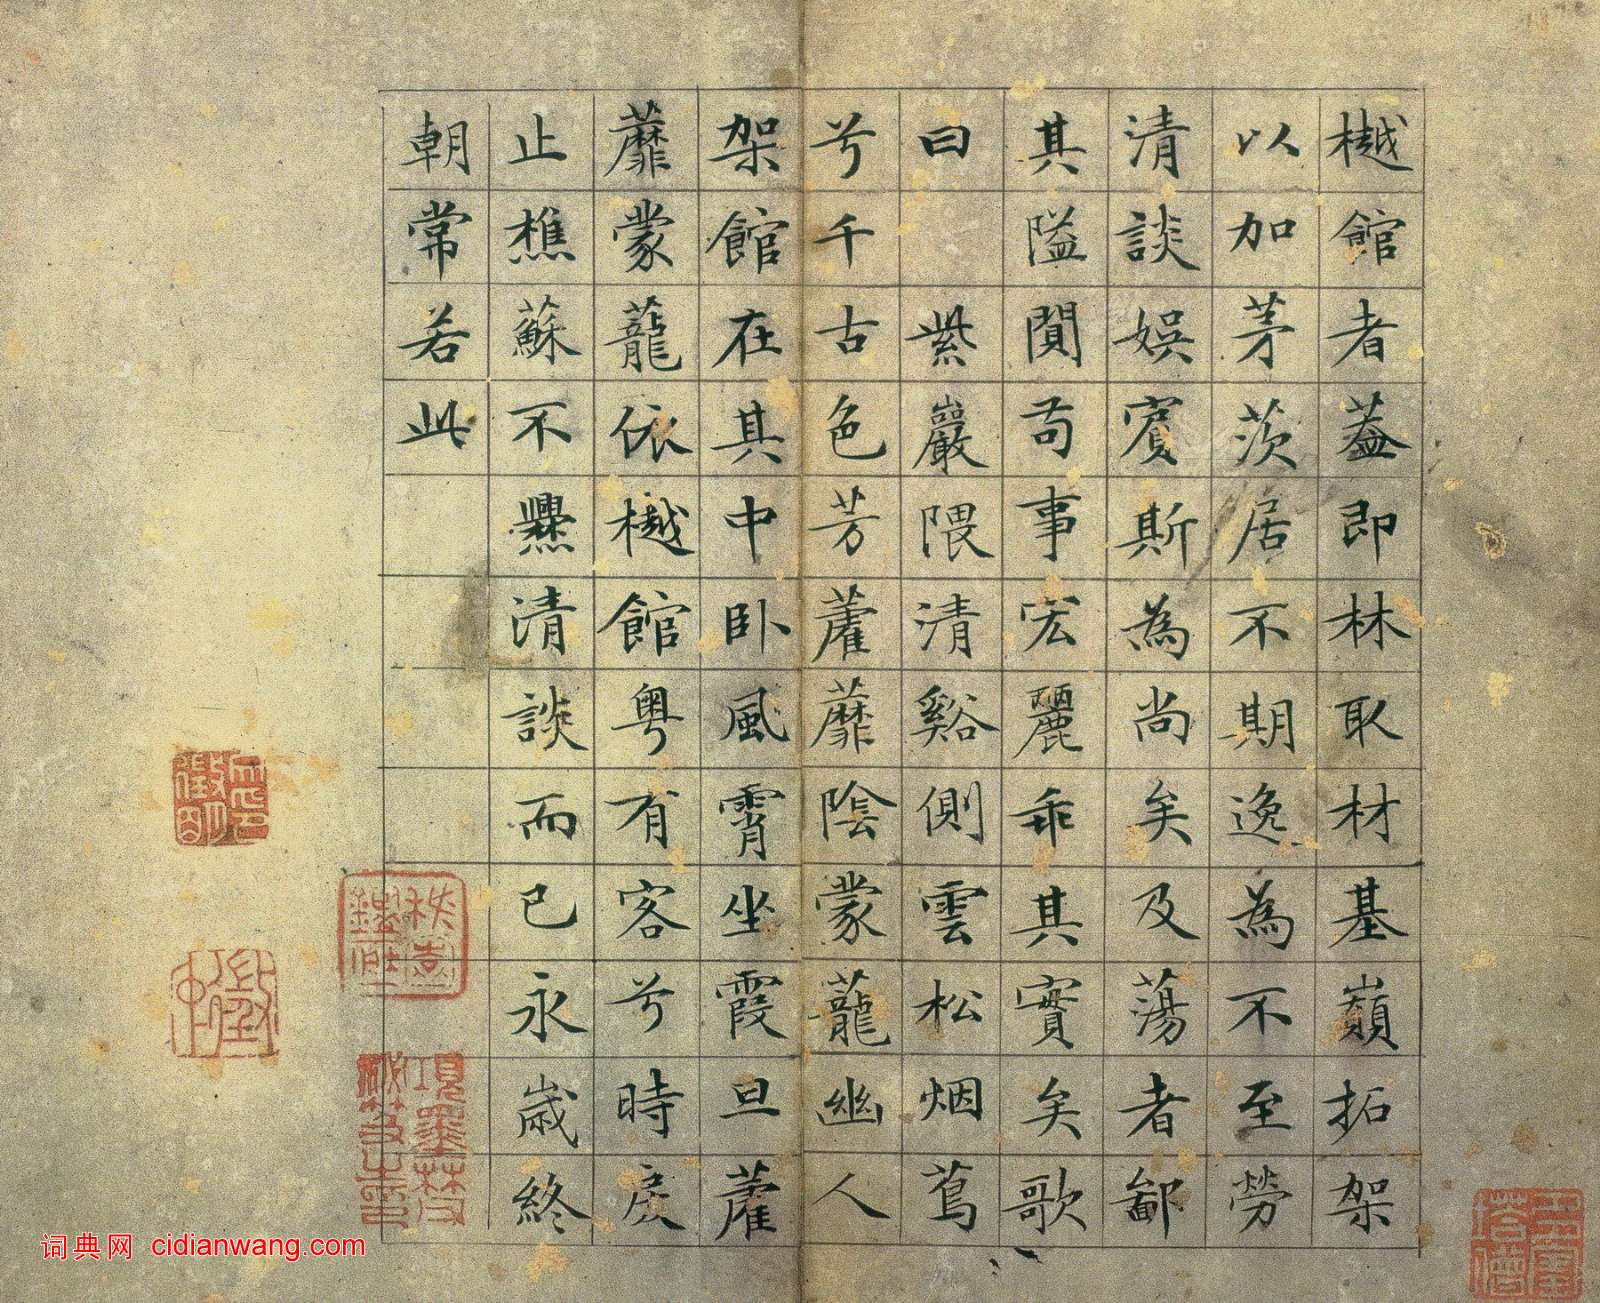 樾館者蓋即林取材基巔拓架
以加茅茨居不期逸為不至勞
清談娛賓斯為尚矣及蕩者鄙
其隘閴苟事宏麗乖其實矣歌
曰紫巖隈清谿側雲松烟蔦
兮千古色芳藿蘼陰蒙蘢幽人
架館在其中卧風霄坐霞旦藿
蘼蒙蘢依樾館粵有客兮時戾
止樵蘇不爨清談而已永歲終
朝常若此
項墨林父秘笈之印
词典网 cidianwang.com